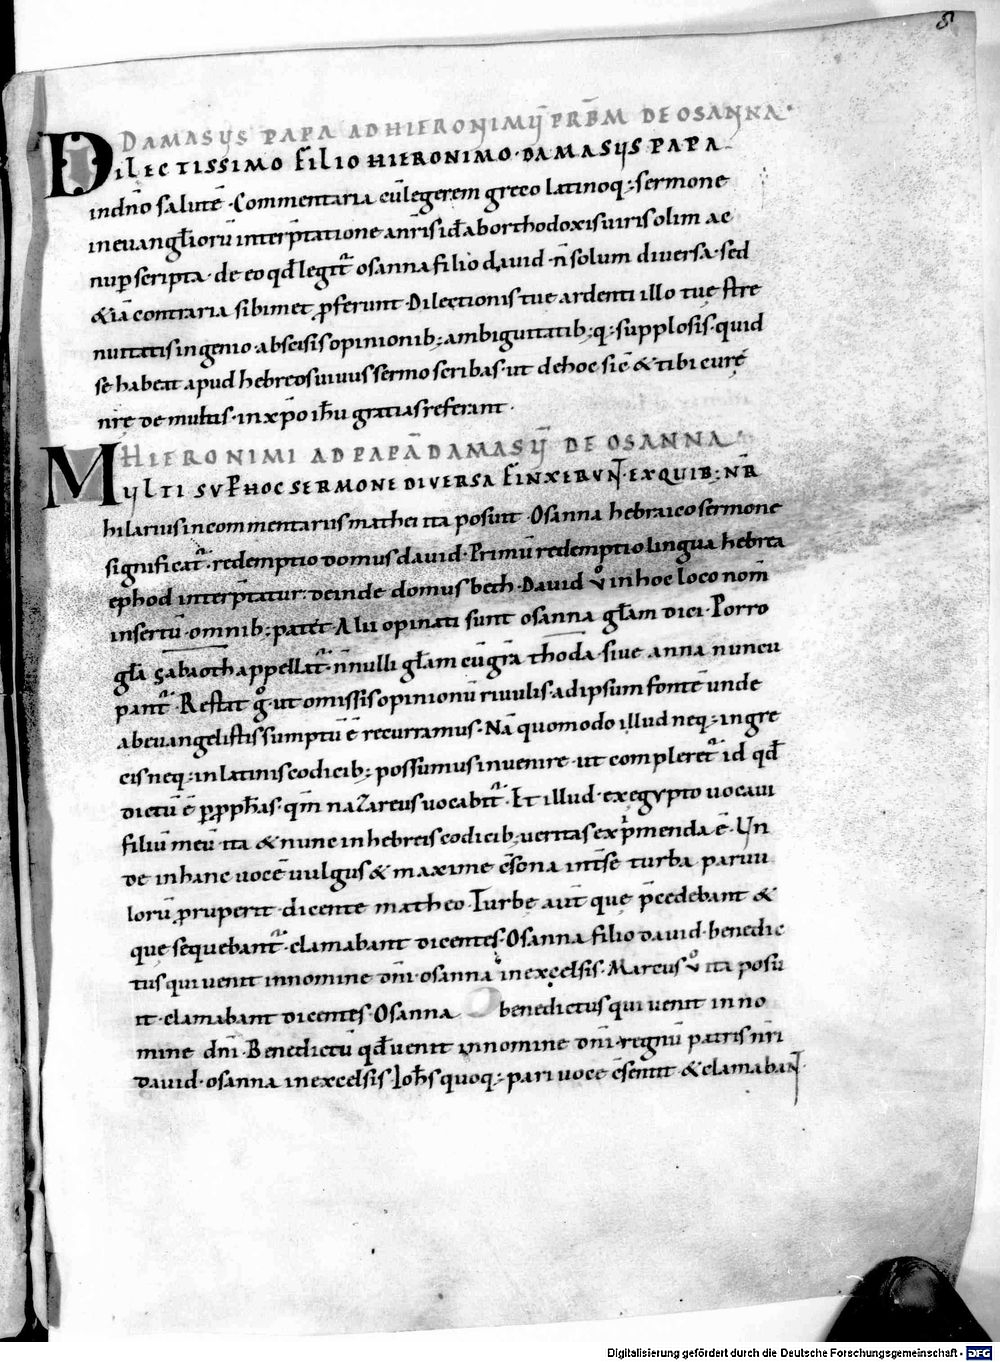 8
DAMASUS PAPA AD HIERONIMŪ PRB̄M DE OSANNA·
DILECTISSIMO FILIO HIERONIMO·DAMASUS PAPA
in dn̄o salutē·Commentaria cū legerem greco latinoq; sermone
in evangl̄iorū interp̄tatione a nr̄is id ab orthodoxis viris olim ac
nup scripta·de eo qd̄ legit̄ osanna filio david·n̄ solum diversa·sed
& iā contraria sibimet p̄ferunt·Dilectionis tuę ardenti illo tuę stre
nuitatis ingenio·abscisis opinionib; ambiguitatib;q; supplosis·quid
se habeat apud hebreos vivus sermo scribas·ut de hoc sic̄ & tibi curę
nr̄e de multis·in xp̄o ih̄u gratias referant·
HIERONIMI AD PAPĀ DAMASŪ DE OSANNA
MULTI SUP HOC SERMONE DIVERSA FINXERUNT·EX QUIB; NR̄
hilarius in commentariis mathei ita posuit·Osanna hebraico sermone
significat̄·redemptio domus david·Primū redemptio lingua hebrea
ephod interp̄tatur·deinde domus beth·David v̊ in hoc loco nom̄
insertū·omnib; patet·Alii opinati sunt osanna gl̄am dici·Porro
gl̄a sabaoth appellat̄·n̄nulli gl̄am cū gr̄a thoda·sive anna nuncu
pant̄·Restat g̊ ut omissis opinionū rivulis·ad ipsum fontē unde
ab evangelistis sumptū ē recurramus·Nā quomodo illud neq; in gre
cis neq; in latinis codicib; possumus invenire·ut compleret̄ id qd̄
dictū ē p̱ pph̄as·qm̄ nazareus vocabit̄·Et illud·ex egypto vocavi
filiū meū·ita & nunc in hebreis codicib; veritas exp̄menda ē·Un
de in hanc vocē vulgus & maxime c̄sona int̄ se turba parvu
lorū p̄ruperit·dicente matheo·Turbę aut̄ quę p̄cedebant &
quę sequebant̄·clamabant dicentes·Osanna filio david·benedic
tus qui venit in nomine dn̄i·osanna in excelsis·Marcus v̊ ita posu
it·clamabant dicentes·Osanna benedictus qui venit in no
mine dn̄i·Benedictū qd̄ venit in nomine dn̄i·regnū patris nr̄i
david·osanna in excelsis·Ioh̄s quoq; pari voce c̄sentit·& clamabant·
Digitalisierung gefördert durch die Deutsche Forschungsgemeinschaft - DFG